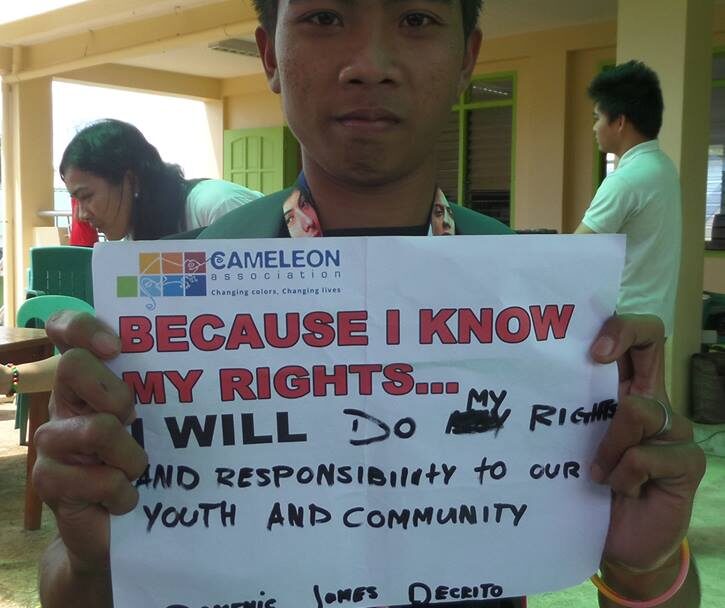 CAMELEON
association
Changing colors, Changing lives
BECAUSE I KNOW
MY RIGHTS...
I WILL DO MY RIGHTS
AND RESPONSIBIlItY to OUR
YOUTH AND COMMUNITY
DOMENIC JAMES DECRITO